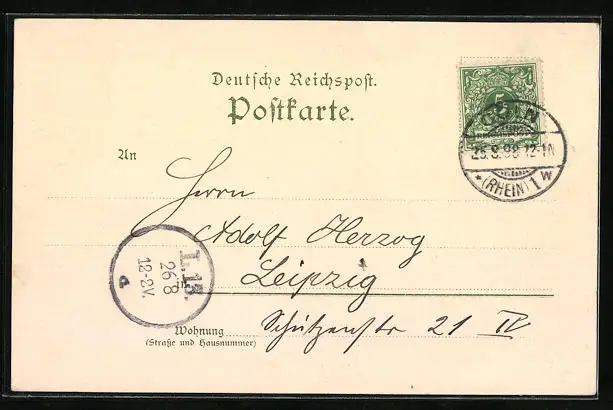 Deutsche Reichspost.
Postkarte.
5
CÖLN
25.8.98 12-1N
*(RHEIN) 1 W
An
Herrn
Adolf Herzog
in
Leipzig
Wohnung
(Straße und Hausnummer)
Schützenstr 21 IV
L.13.
26 8
12-2V.
a